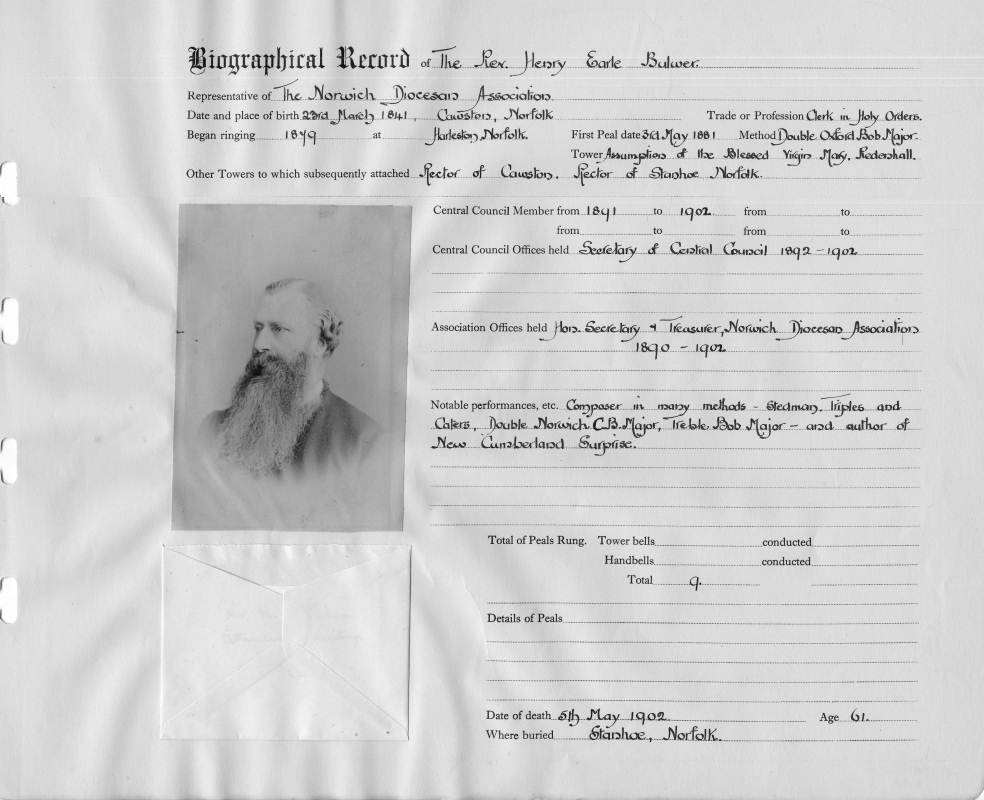 Biographical Record of The Rev. Henry Earle Bulwer.
Representative of The Norwich Diocesan Association.
Date and place of birth 23rd March 1841, Cawston, Norfolk Trade or Profession Clerk in Holy Orders.
Began ringing 1879 at Harleston, Norfolk. First Peal date 3rd May 1881 Method Double Oxford Bob Major.
Tower Assumption of the Blessed Virgin Mary, Redenhall.
Other Towers to which subsequently attached Rector of Cawston. Rector of Stanhoe Norfolk.
Central Council Member from 1891 to 1902 from to
from to from to
Central Council Offices held Secretary of Central Council 1892 - 1902
Association Offices held Hon. Secretary & Treasurer, Norwich Diocesan Association
1890 - 1902
Notable performances, etc. Composer in many methods - Stedman. Triples and
Caters, Double Norwich C.B. Major, Treble Bob Major - and author of
New Cumberland Surprise.
Total of Peals Rung. Tower bells conducted
Handbells conducted
Total 9.
Details of Peals
Date of death 5th May 1902. Age 61.
Where buried Stanhoe, Norfolk.